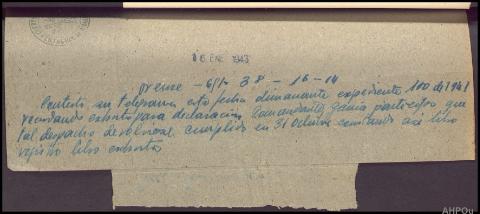 16 ENE 1943
orense - 651 38 - 16 - 14
Contesto su telegrama esta fecha dimanante expediente 100 de 1941
recordando exhorto para declaración Comandante García participo que
tal despacho devolviose cumplido en 31 octubre constando así libro
registro libro exhortos
AHPOu